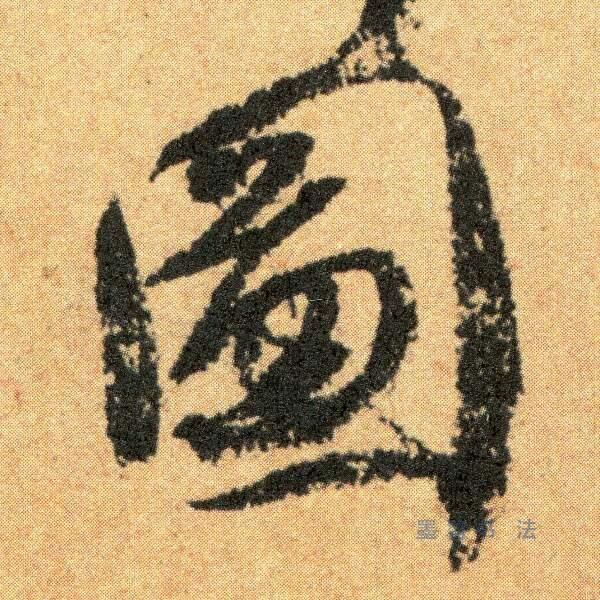 圖
墨 书 法